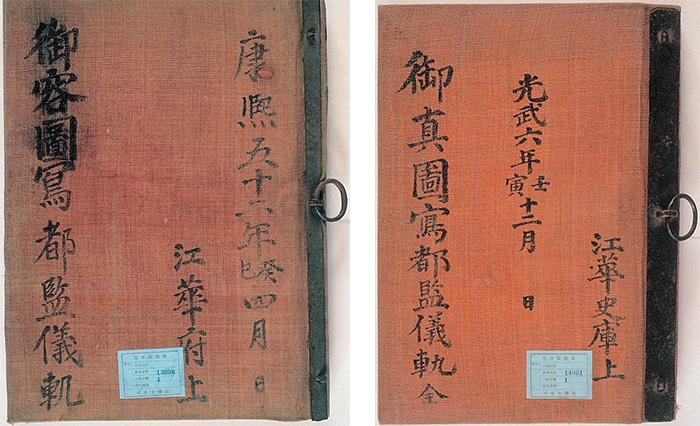 康熙五十二年癸巳四月 日
江華府上
御容圖寫都監儀軌
1
江華史庫上
光武六年壬寅十二月 日
御真圖寫都監儀軌 全
14001
1